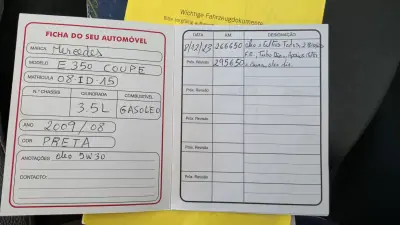 Wichtige Fahrzeugdokumente
FICHA DO SEU AUTOMÓVEL
MARCA Mercedes
MODELO E 350 COUPE
MATRÍCULA 08-ID-15
N.º CHASSIS CILINDRADA COMBUSTÍVEL
3.5L GASOLEO
ANO 2009/08
COR PRETA
ANOTAÇÕES oleo 5W30
CONTACTO:
DATA KM. DESIGNAÇÃO
8/12/23 266650 oleo e Filtros Todos
Próx. Revisão 295650
Próx. Revisão
Próx. Revisão
Próx. Revisão
Próx. Revisão